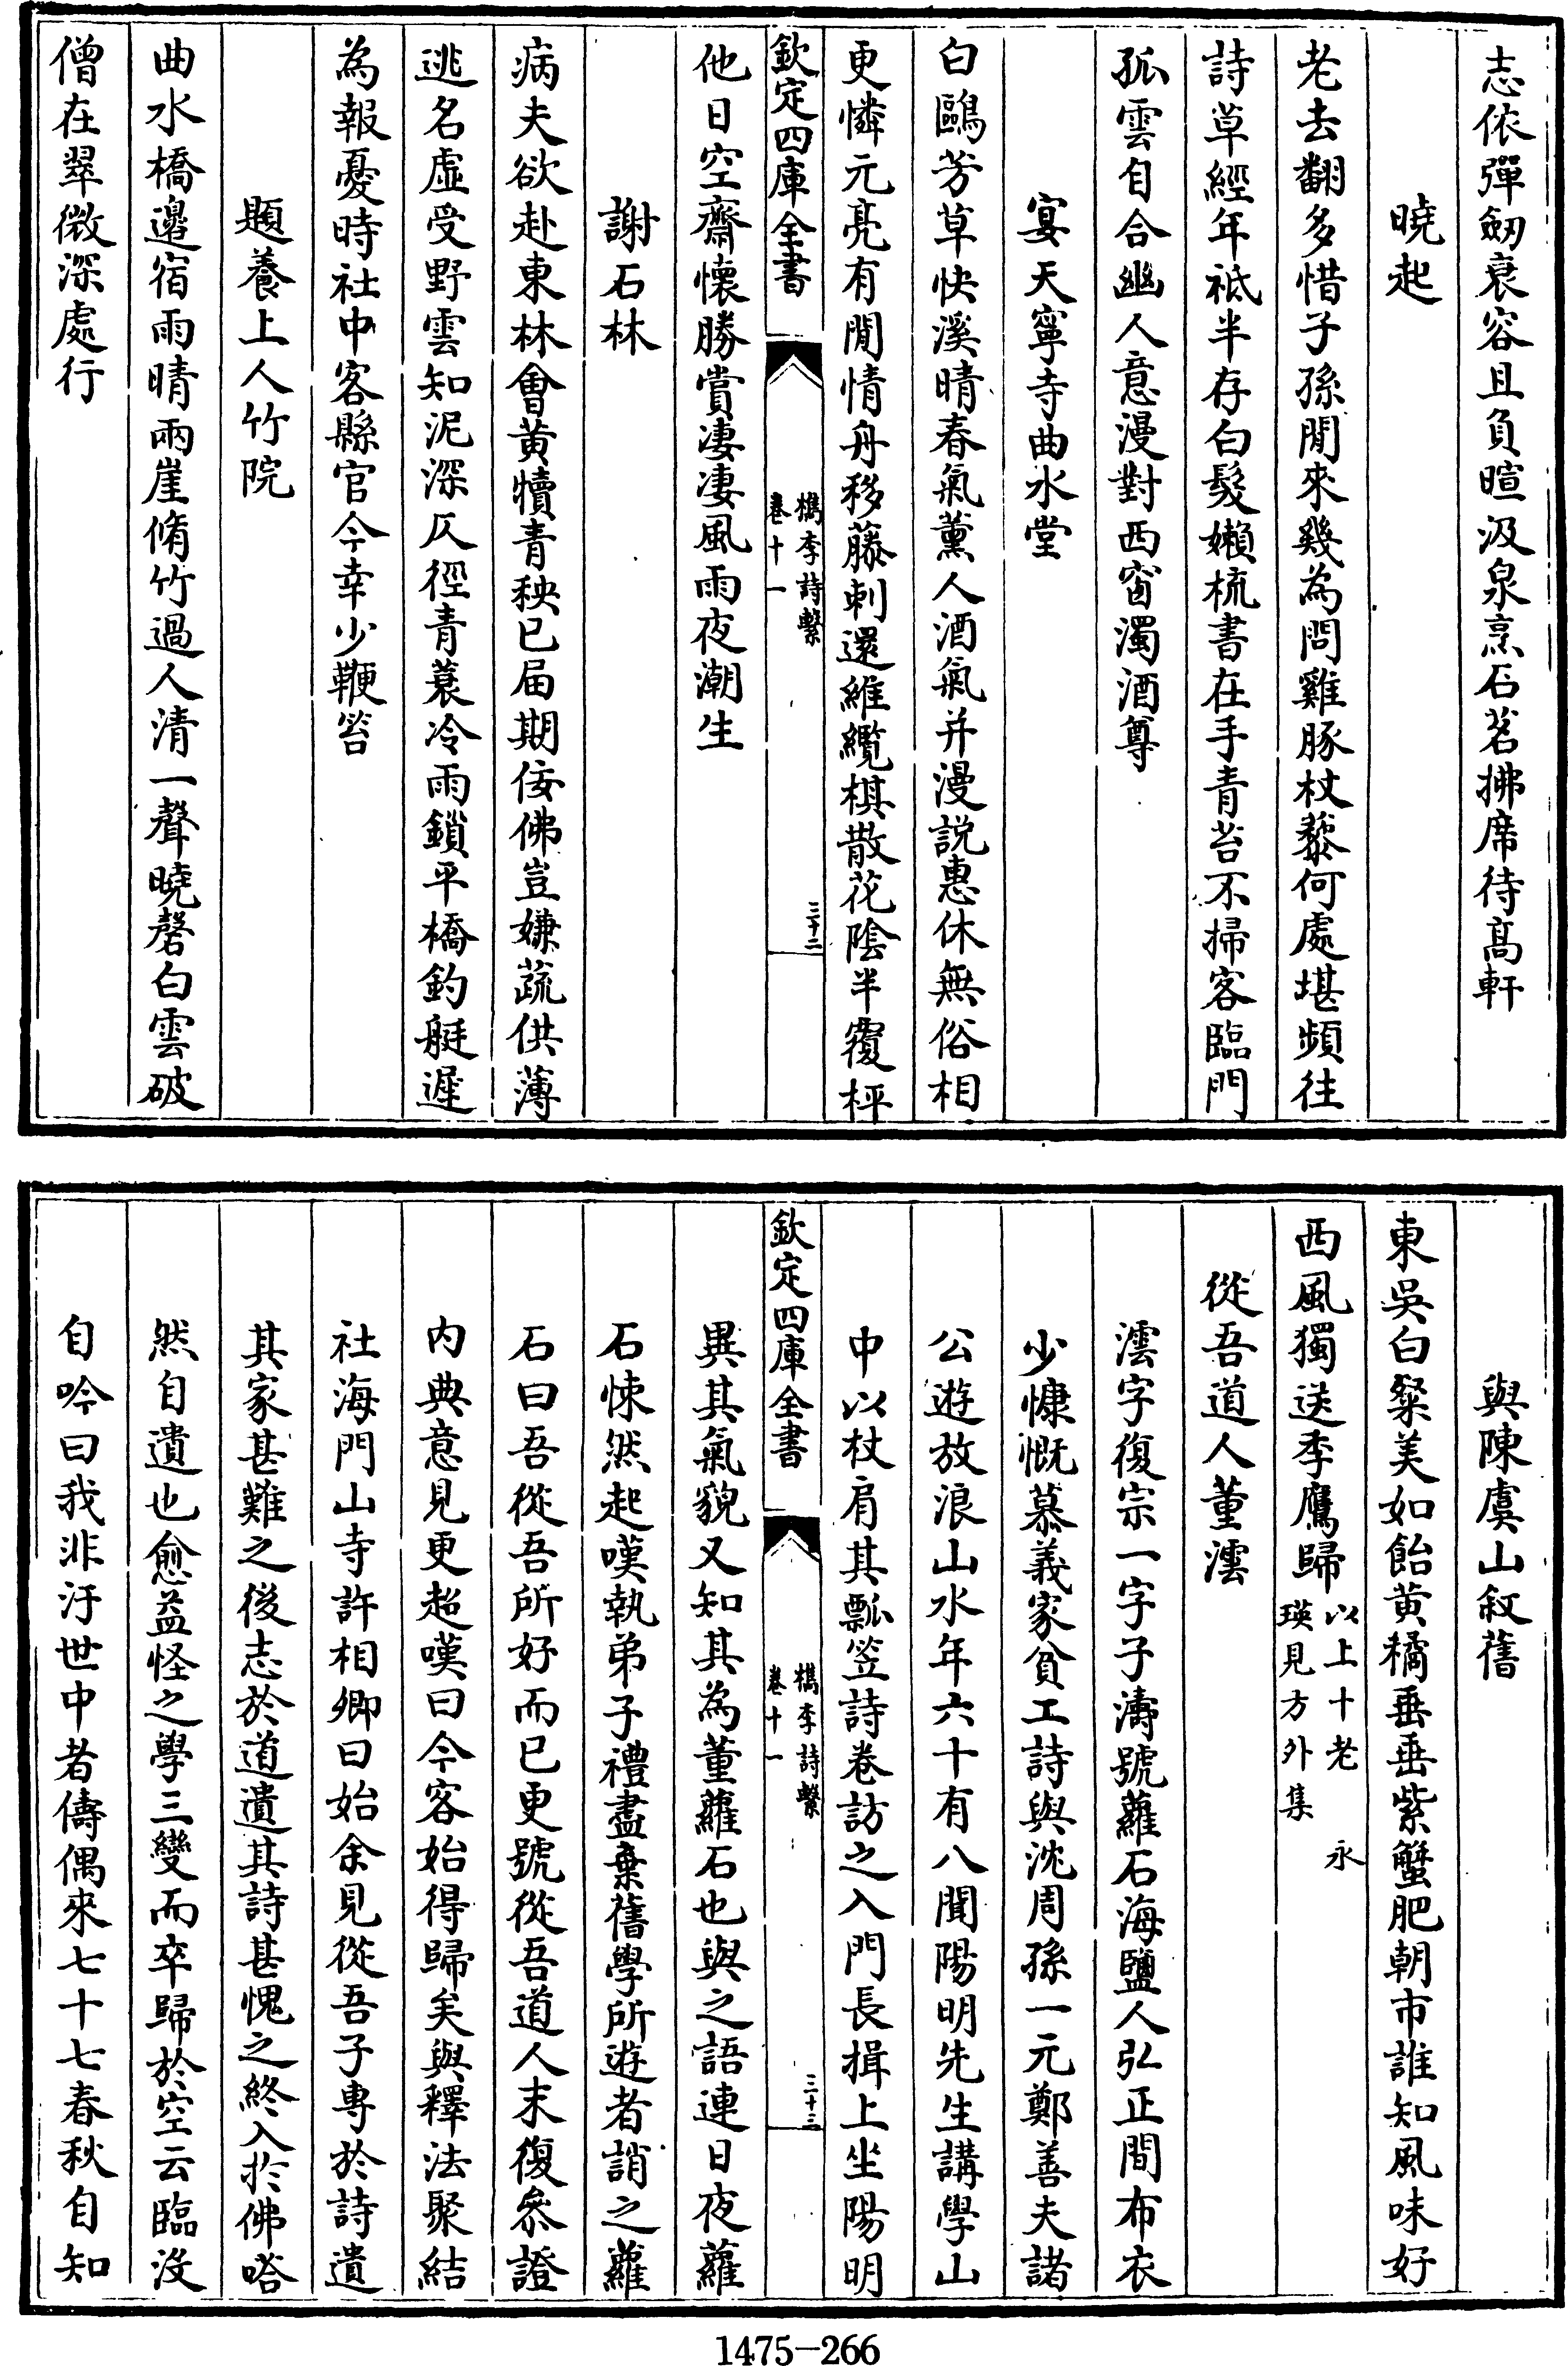 志依彈劒衰容且負暄汲泉烹石茗拂席待高軒
曉起
老去翻多惜子孫閒來幾為問雞豚杖藜何處堪頻往
詩草經年祗半存白髮嬾梳書在手青苔不掃客臨門
孤雲自合幽人意漫對西窗濁酒尊
宴天寧寺曲水堂
白鷗芳草快溪晴春氣薰人酒氣并漫説惠休無俗相
更憐元亮有閒情舟移藤刺還維纜棋散花陰半覆枰
欽定四庫全書
檇李詩繫
卷十一
三十二
他日空齋懷勝賞淒淒風雨夜潮生
謝石林
病夫欲赴東林會黄犢青秧已届期佞佛豈嫌蔬供薄
逃名虛受野雲知泥深仄徑青蓑冷雨鎖平橋釣艇遲
為報憂時社中客縣官今幸少鞭笞
題養上人竹院
曲水橋邉宿雨晴兩崖脩竹過人清一聲曉磬白雲破
僧在翠微深處行
與陳虞山叙舊
東吳白粲美如飴黄橘垂垂紫蟹肥朝市誰知風味好
西風獨送季鷹歸以上十老 永
瑛見方外集
從吾道人董澐
澐字復宗一字子濤號蘿石海鹽人弘正間布衣
少慷慨慕義家貧工詩與沈周孫一元鄭善夫諸
公遊放浪山水年六十有八聞陽明先生講學山
中以杖肩其瓢笠詩卷訪之入門長揖上坐陽明
欽定四庫全書
檇李詩繫
卷十一
三十三
異其氣貌又知其為董蘿石也與之語連日夜蘿
石悚然起嘆執弟子禮盡棄舊學所遊者誚之蘿
石曰吾從吾所好而已更號從吾道人末復叅證
内典意見更超嘆曰今客始得歸矣與釋法聚結
社海門山寺許相卿曰始余見從吾子專於詩遺
其家甚難之後志於道遺其詩甚愧之終入於佛嗒
然自遺也愈益怪之學三變而卒歸於空云臨没
自吟曰我非汙世中者儔偶來七十七春秋自知
1475-266